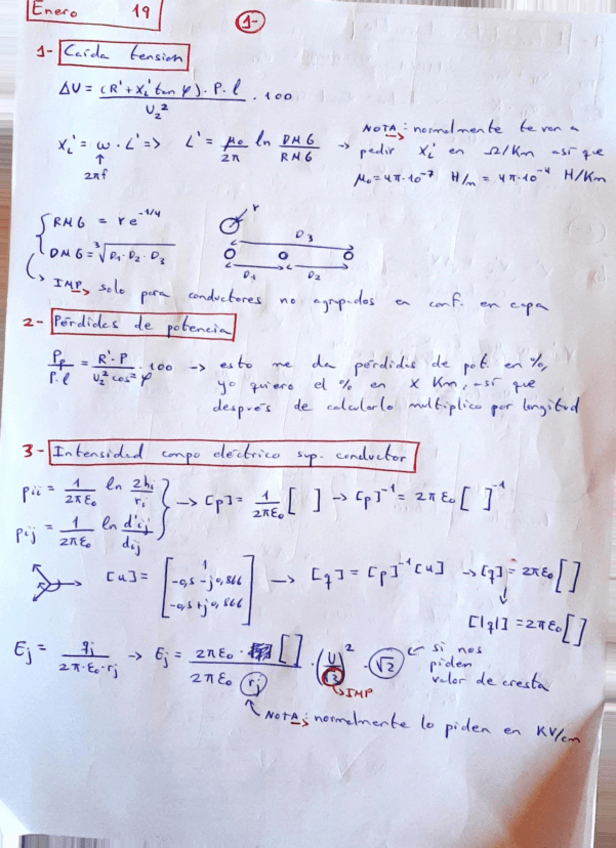 Enero 19
1-
1- Caída tension
ΔU = (R' + XL' tan φ) · P · l / U₂² · 100
XL' = ω · L' => L' = μ₀/2π ln DMG/RMG →
2πf
NOTA: normalmente te van a
pedir XL' en Ω/Km así que
μ₀ = 4π·10⁻⁷ H/m = 4π·10⁻⁴ H/Km
RMG = r e^(-1/4)
DMG = ³√(D₁·D₂·D₃)
r
D₃
D₁ D₂
IMP solo para conductores no agrupados en conf. en capa
2- Pérdidas de potencia
Pp/P·l = R'·P / U₂² cos² φ · 100 → esto me da pérdidis de pot. en %,
yo quiero el % en x Km, así que
después de calcularlo multiplico por longitud
3- Intensidad campo eléctrico sup. conductor
pii = 1/2πε₀ ln 2hi/ri
pij = 1/2πε₀ ln d'ij/dij
→ [p] = 1/2πε₀ [ ] → [p]⁻¹ = 2πε₀ [ ]⁻¹
[u] = [1
-0,5 - j0,866
-0,5 + j0,866] → [q] = [p]⁻¹ [u] → [q] = 2πε₀ [ ]
↓
[|q|] = 2πε₀ [ ]
Ej = qj / 2π·ε₀·rj → Ej = 2πε₀ · [ ] / 2πε₀ rj · (U/√3)² · √2
← si nos
piden
valor de cresta
IMP
NOTA: normalmente lo piden en KV/cm